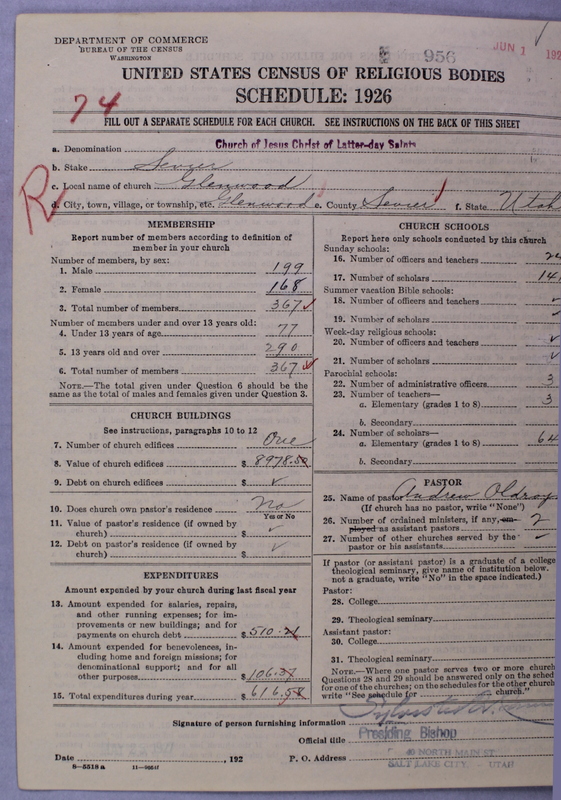 DEPARTMENT OF COMMERCE
BUREAU OF THE CENSUS
WASHINGTON
956
JUN 1 192
UNITED STATES CENSUS OF RELIGIOUS BODIES
SCHEDULE: 1926
74
FILL OUT A SEPARATE SCHEDULE FOR EACH CHURCH. SEE INSTRUCTIONS ON THE BACK OF THIS SHEET
a. Denomination Church of Jesus Christ of Latter-day Saints
b. Stake Sevier
c. Local name of church Glenwood
R
d. City, town, village, or township, etc. Glenwood e. County Sevier f. State Utah
MEMBERSHIP
Report number of members according to definition of
member in your church
Number of members, by sex:
1. Male 199
2. Female 168
3. Total number of members 367
Number of members under and over 13 years old:
4. Under 13 years of age 77
5. 13 years old and over 290
6. Total number of members 367
NOTE.—The total given under Question 6 should be
same as the total of males and females given under Question 3.
CHURCH BUILDINGS
See instructions, paragraphs 10 to 12
7. Number of church edifices One
8. Value of church edifices $ 8978.50
9. Debt on church edifices $ ✓
10. Does church own pastor's residence No
Yes or No
11. Value of pastor's residence (if owned by
church) $ ✓
12. Debt on pastor's residence (if owned by
church) $ ✓
EXPENDITURES
Amount expended by your church during last fiscal year
13. Amount expended for salaries, repairs,
and other running expenses; for im-
provements or new buildings; and for
payments on church debt $ 510.21
14. Amount expended for benevolences, in-
cluding home and foreign missions; for
denominational support; and for all
other purposes $ 106.37
15. Total expenditures during year $ 616.58
CHURCH SCHOOLS
Report here only schools conducted by this church
Sunday schools:
16. Number of officers and teachers 24
17. Number of scholars 141
Summer vacation Bible schools:
18. Number of officers and teachers
19. Number of scholars
Week-day religious schools:
20. Number of officers and teachers ✓
21. Number of scholars ✓
Parochial schools:
22. Number of administrative officers 3
23. Number of teachers—
a. Elementary (grades 1 to 8) 3
b. Secondary
24. Number of scholars—
a. Elementary (grades 1 to 8) 64
b. Secondary
PASTOR
25. Name of pastor Andrew Oldroy
(If church has no pastor, write "None")
26. Number of ordained ministers, if any, em-
ployed as assistant pastors 2
27. Number of other churches served by the
pastor or his assistants
If pastor (or assistant pastor) is a graduate of a college
theological seminary, give name of institution below.
not a graduate, write "No" in the space indicated.)
Pastor:
28. College
29. Theological seminary
Assistant pastor:
30. College
31. Theological seminary
NOTE.—Where one pastor serves two or more church
Questions 28 and 29 should be answered only on the sched
for one of the churches; on the schedules for the other church
write "See schedule for church."
Signature of person furnishing information Sylvester
Official title Presiding Bishop
Date , 192 P. O. Address 40 NORTH MAIN ST
SALT LAKE CITY, UTAH
8—5518 a